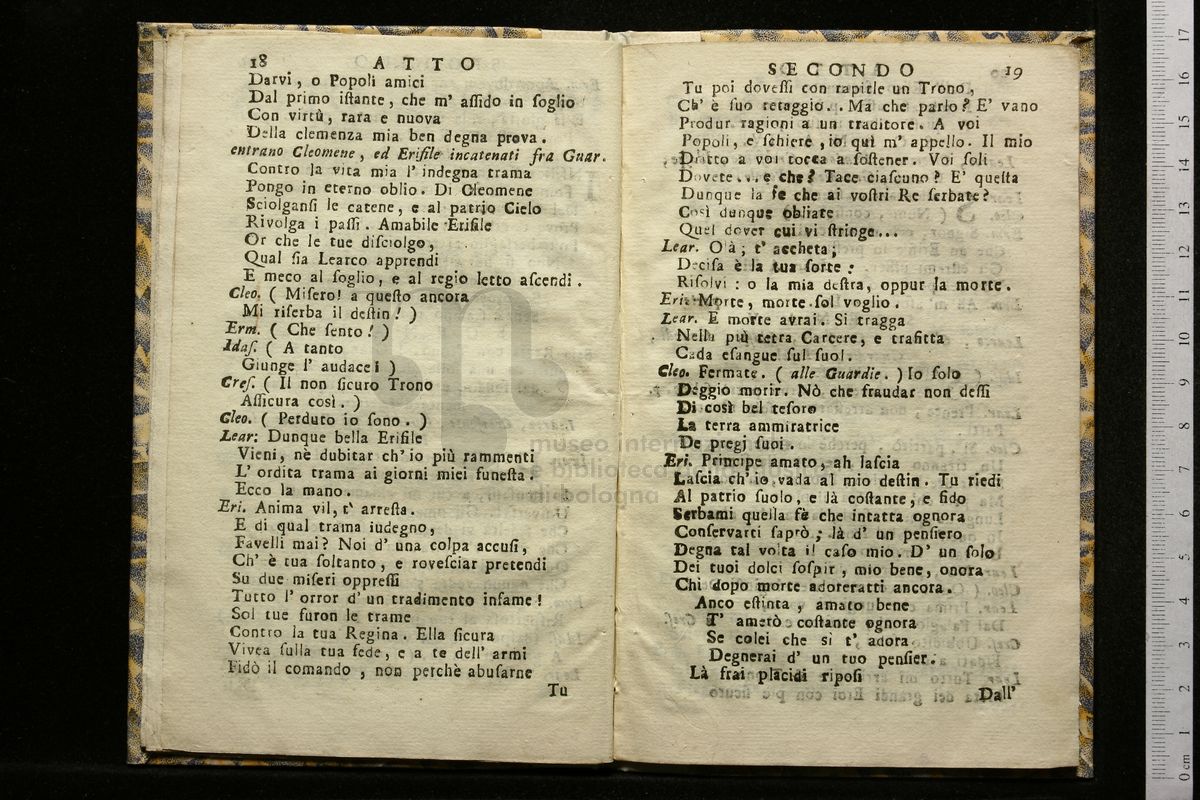 18 ATTO
Darvi, o Popoli amici
Dal primo iſtante, che m' aſſido in ſoglio
Con virtù, rara e nuova
Della clemenza mia ben degna prova.
entrano Cleomene, ed Eriſile incatenati fra Guar.
Contro la vita mia l' indegna trama
Pongo in eterno oblio. Di Cleomene
Sciolganſi le catene, e al patrio Cielo
Rivolga i paſſi. Amabile Eriſile
Or che le tue diſciolgo,
Qual ſia Learco apprendi
E meco al ſoglio, e al regio letto aſcendi.
Cleo. ( Miſero! a queſto ancora
Mi riſerba il deſtin! )
Erm. ( Che ſento! )
Idaſ. ( A tanto
Giunge l' audace! )
Creſ. ( Il non ſicuro Trono
Aſſicura così. )
Cleo. ( Perduto io ſono. )
Lear: Dunque bella Eriſile
Vieni, nè dubitar ch' io più rammenti
L' ordita trama ai giorni miei funeſta.
Ecco la mano.
Eri. Anima vil, t' arreſta.
E di qual trama iudegno,
Favelli mai? Noi d' una colpa accuſi,
Ch' è tua ſoltanto, e roveſciar pretendi
Su due miſeri oppreſſi
Tutto l' orror d' un tradimento infame!
Sol tue furon le trame
Contro la tua Regina. Ella ſicura
Vivea ſulla tua fede, e a te dell' armi
Fidò il comando, non perchè abuſarne
Tu
SECONDO 19
Tu poi doveſſi con rapirle un Trono,
Ch' è ſuo retaggio.. Ma che parlo? E' vano
Produr ragioni a un traditore. A voi
Popoli, e ſchiere, io quì m' appello. Il mio
Dritto a voi tocca a ſoſtener. Voi ſoli
Dovete... e che? Tace ciaſcuno? E' queſta
Dunque la fe che ai voſtri Re ſerbate?
Così dunque obliate
Quel dover cui vi ſtringe...
Lear. Olà; t' accheta;
Deciſa è la tua ſorte:
Riſolvi: o la mia deſtra, oppur la morte.
Eri. Morte, morte ſol voglio.
Lear. E morte avrai. Si tragga
Nella più tetra Carcere, e trafitta
Cada eſangue ſul ſuol.
Cleo. Fermate. ( alle Guardie. ) Io ſolo
Deggio morir. Nò che fraudar non deſſi
Di così bel teſoro
La terra ammiratrice
De pregj ſuoi.
Eri. Principe amato, ah laſcia
Laſcia ch' io vada al mio deſtin. Tu riedi
Al patrio ſuolo, e là coſtante, e fido
Serbami quella fè che intatta ognora
Conſervarti ſaprò; là d' un penſiero
Degna tal volta il caſo mio. D' un ſolo
Dei tuoi dolci ſoſpir, mio bene, onora
Chi dopo morte adoreratti ancora.
Anco eſtinta, amato bene
T' amerò coſtante ognora
Se colei che sì t' adora
Degnerai d' un tuo penſier.
Là frai placidi ripoſi
Dall'
museo internazionale
e biblioteca della musica
di bologna
0 cm 1 2 3 4 5 6 7 8 9 10 11 12 13 14 15 16 17